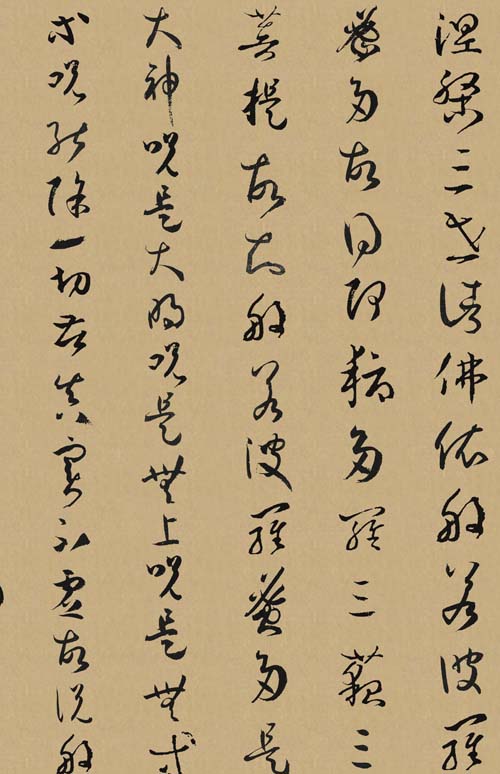 涅槃三世諸佛依般若波羅
蜜多故得阿耨多羅三藐三
菩提故知般若波羅蜜多是
大神呪是大明呪是無上呪是無等
等呪能除一切苦真實不虛故說般